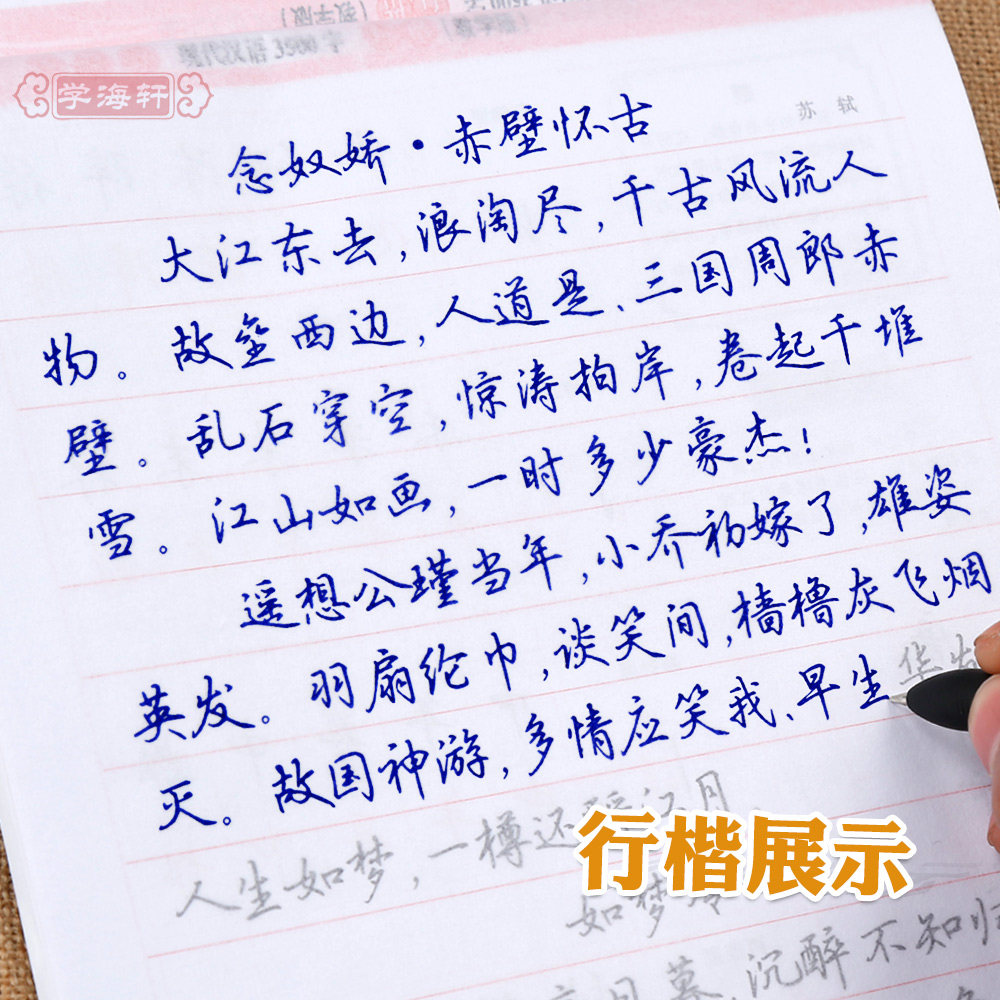 (教学版)
现代汉语3500字
学海轩
苏轼
念奴娇·赤壁怀古
大江东去,浪淘尽,千古风流人
物。故垒西边,人道是、三国周郎赤
壁。乱石穿空,惊涛拍岸,卷起千堆
雪。江山如画,一时多少豪杰!
遥想公瑾当年,小乔初嫁了,雄姿
英发。羽扇纶巾,谈笑间,樯橹灰飞烟
灭。故国神游,多情应笑我、早生华发
人生如梦,一樽还酹江月
行楷展示
如梦令
日暮,沉醉不知归